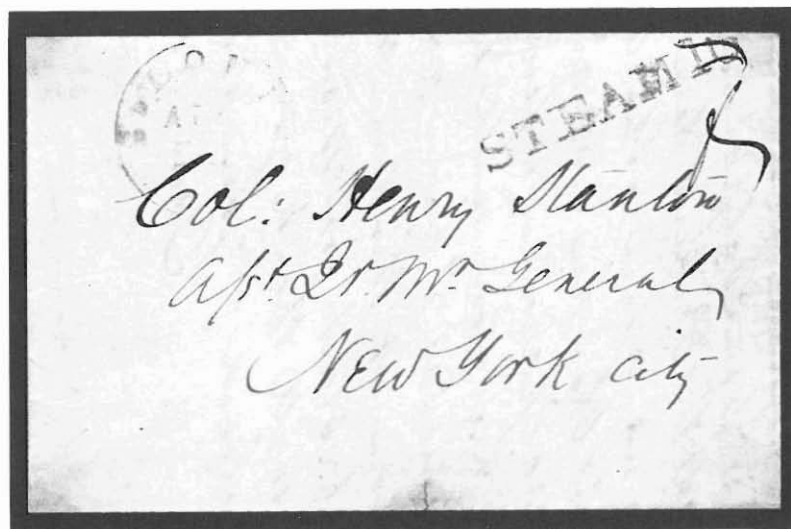 STEAM
Col: Henry Stanton
Asst. Qr. Mr. General
New York City